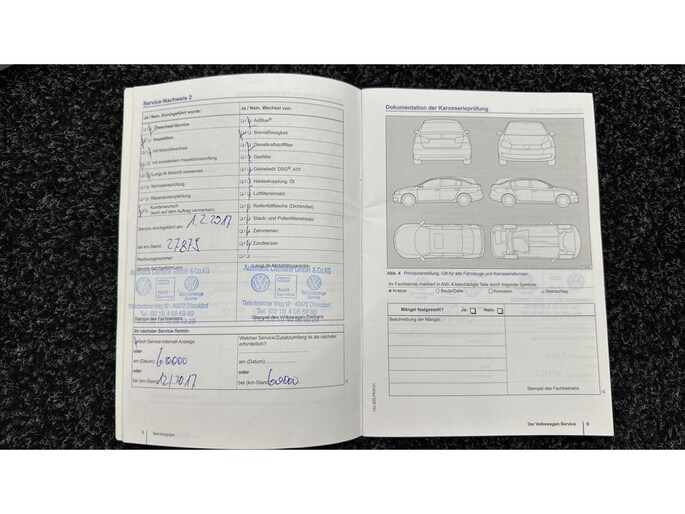 Service-Nachweis 2
Ja / Nein, Durchgeführt wurde:
Ölwechsel-Service
Inspektion
mit Motorölwechsel
mit erweitertem Inspektionsumfang
LongLife Motoröl verwendet
Karosserieprüfung
Reparaturempfehlung
Kundenwunsch
(wird auf dem Auftrag vermerkt)
Service durchgeführt am: 1.2.2017
bei km-Stand: 27879
Rechnungsnummer:
Service durchgeführt von:
Stempel des Fachbetriebs
Ja / Nein, Wechsel von:
AdBlue®
Bremsflüssigkeit
Dieselkraftstofffilter
Gasfilter
Getriebeöl: DSG®, ATF
Haldexkupplung: Öl
Luftfiltereinsatz
Reifenfüllflasche (Dichtmittel)
Staub- und Pollenfiltereinsatz
Zahnriemen
Zündkerzen
LongLife Mobilitätsgarantie
GmbH & Co.KG
Audi
Service
Stempel des Volkswagen Partners
Ihr nächster Service-Termin
nach Service-Intervall-Anzeige
oder
am (Datum): 60000
oder
bei (km-Stand): 12/2017
Welcher Service/Zusatzumfang ist als nächster
erforderlich?
am (Datum):
oder
bei (km-Stand): 60000
8
Serviceplan
Dokumentation der Karosserieprüfung
Abb. 4 Prinzipdarstellung. Gilt für alle Fahrzeuge und Karosserieformen.
Ihr Fachbetrieb markiert in Abb. 4 beschädigte Teile durch folgende Symbole:
Kratzer
Beule/Delle
Korrosion
Steinschlag
Mängel festgestellt?
Ja:
Nein:
Beschreibung der Mängel:
Stempel des Fachbetriebs
Der Volkswagen Service
9